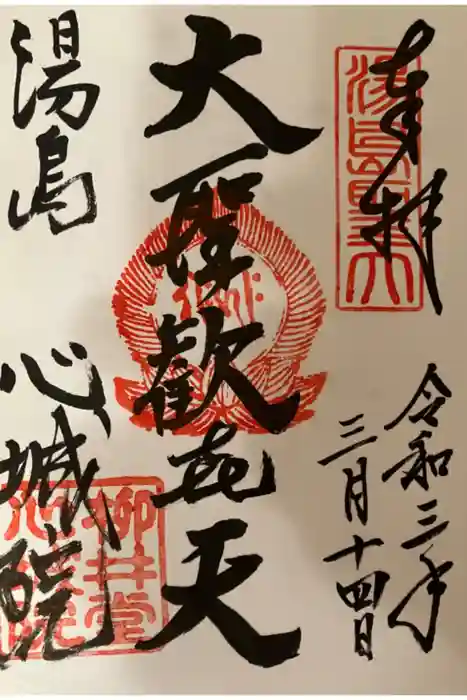 奉拝
湯島聖天
令和三年
三月十四日
大聖歓㐂天
湯島
心城院
柳井堂
心城院